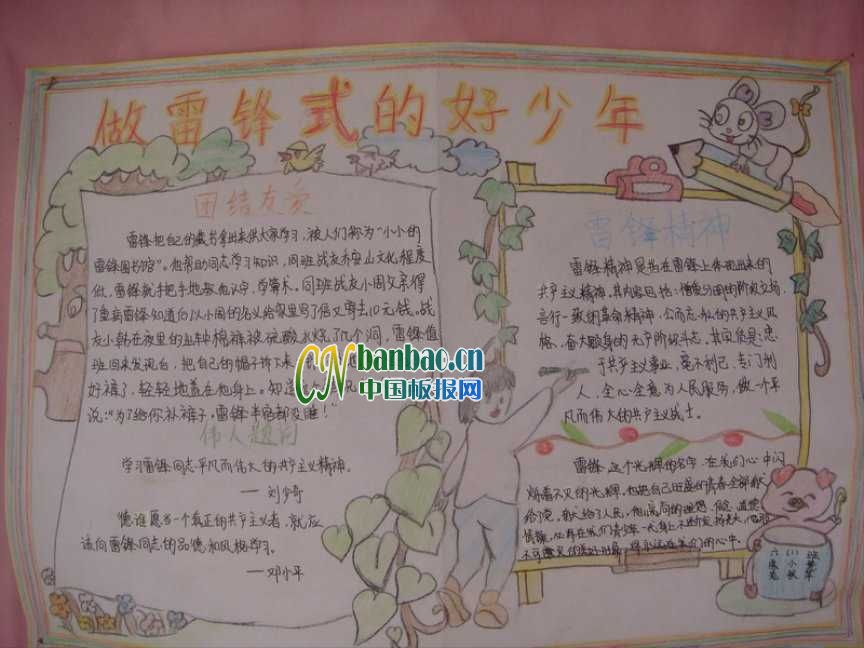 做雷锋式的好少年
团结友爱
雷锋把自己的藏书拿出来供大家学习,被人们称为"小小的
雷锋图书馆"。他帮助同志学习知识,同班战友乔安山文化程度
低,雷锋就手把手地教他认字,学算术。同班战友小周父亲得
了重病雷锋知道后以小周的名义给家里写了信又寄去10元钱。战
友小韩在夜里出车棉裤被硫酸水烧了几个洞,雷锋值
班回来发现后,把自己的帽子拆下来
好裤子,轻轻地盖在他身上。知道
说:"为了给你补裤子,雷锋半宿都没睡!"
伟人题词
学习雷锋同志平凡而伟大的共产主义精神。
——刘少奇
谁愿当一个真正的共产主义者,就应
该向雷锋同志的品德和风格学习。
——邓小平
雷锋精神
雷锋精神是指在雷锋上体现出来的
共产主义精神,其内容包括:憎爱分明的阶级立场,
言行一致的革命精神,公而忘私的共产主义风
格,奋不顾身的无产阶级斗志,其实质是:忠
于共产主义事业,毫不利己,专门利
人,全心全意为人民服务,做一个平
凡而伟大的共产主义战士。
雷锋,这个光辉的名字,在我们心中闪
烁着不灭的光辉。他把自己旺盛的青春全部献
给了党,献给了人民,他崇高的理想、信念、道德
情操
我们的心中。
六(1)班
CNbanbao.cn
中国板报网